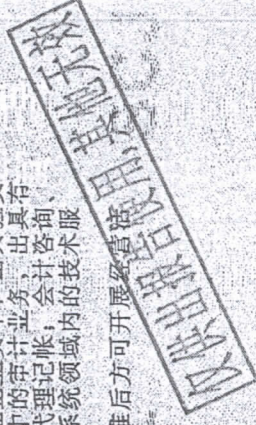 具有
中的审计业务,出具
代理记帐;会计咨询、
系统领域内的技术服
准后方可开展经营活
仅供出报告使用,其他无效